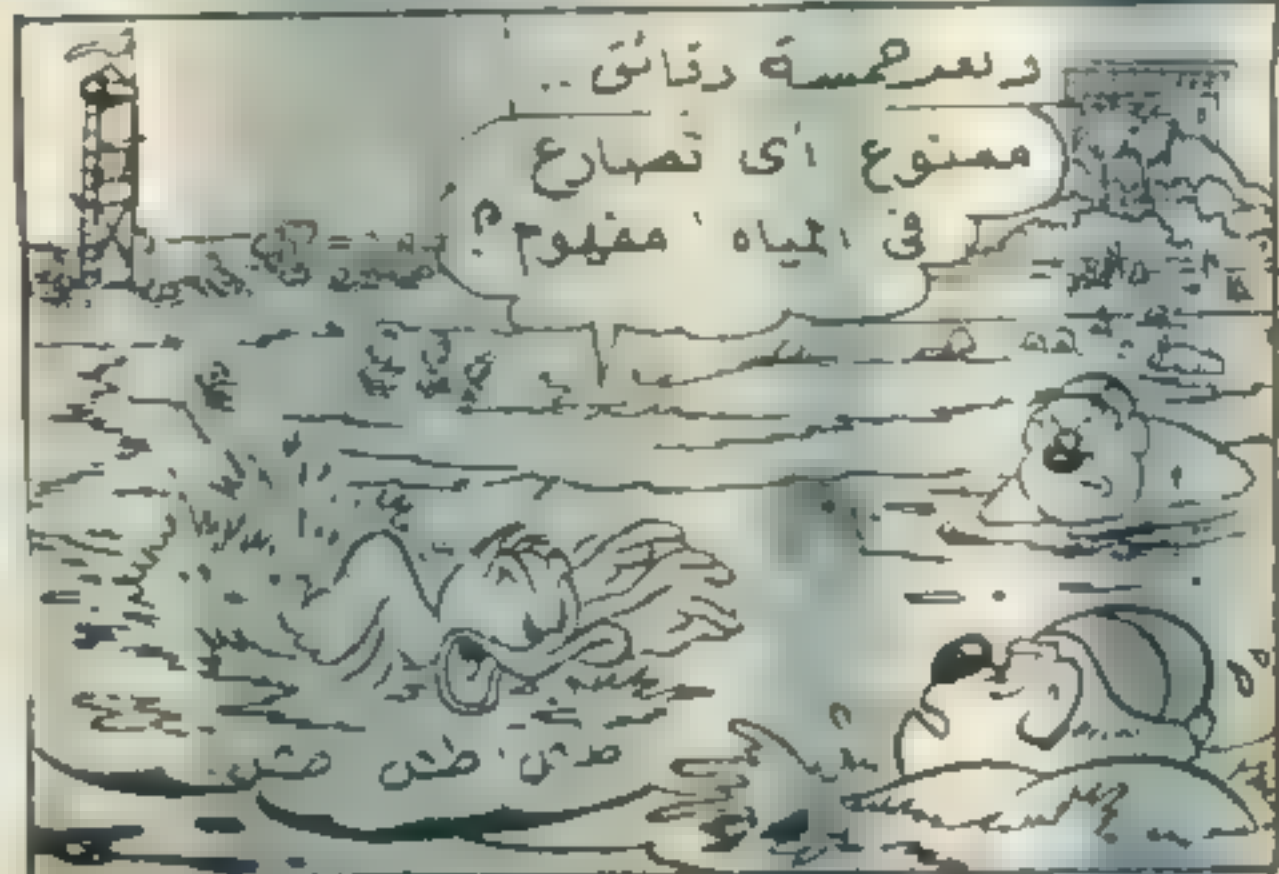 وبعد خمسة دقائق ..
ممنوع أى تصارع
فى المياه ' مفهوم ؟
طش طش طش